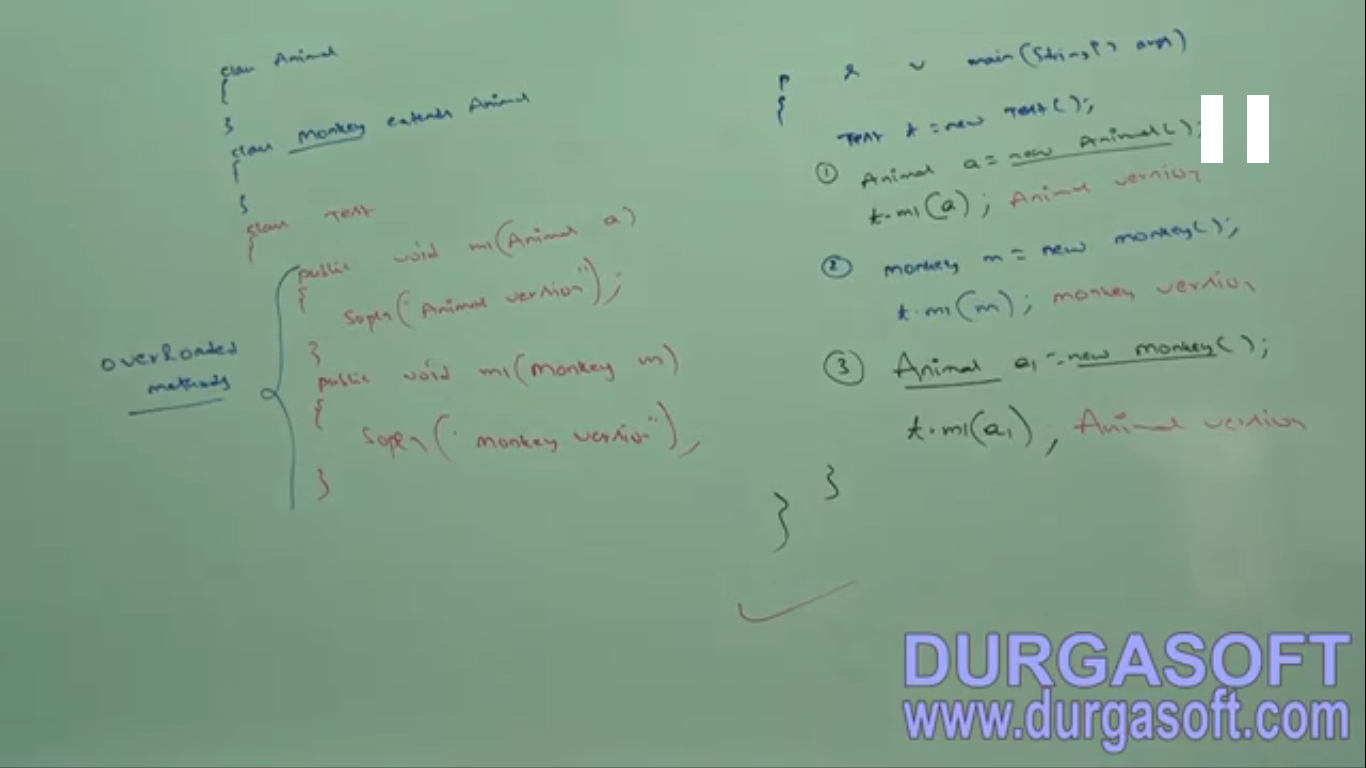 class Animal
{
}
class monkey extends Animal
{
}
class Test
{
public void m1(Animal a)
{
Sopln("Animal version");
}
public void m1(monkey m)
{
Sopln("monkey version");
}
overloaded
methods
p s v main(String[] args)
{
Test t = new Test();
① Animal a = new Animal();
t.m1(a); Animal version
② monkey m = new monkey();
t.m1(m); monkey version
③ Animal a1 = new monkey();
t.m1(a1); Animal version
}
}
DURGASOFT
www.durgasoft.com